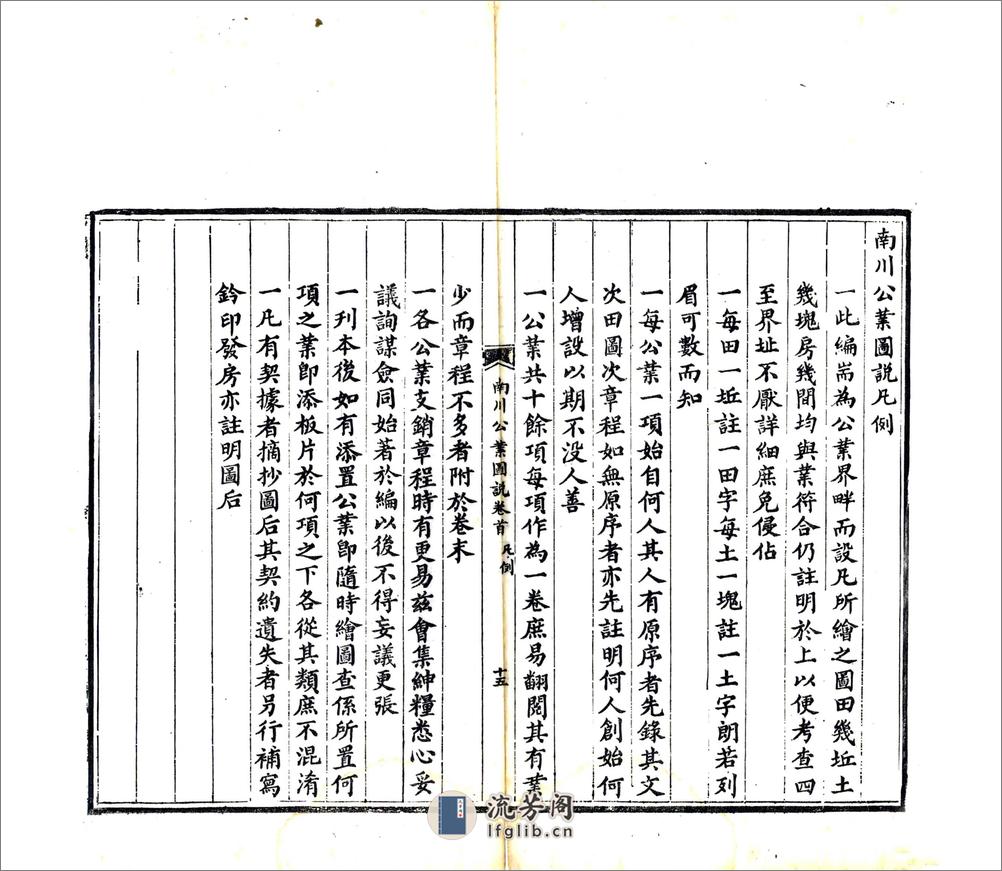 南川公業圖說凡例
一此編耑為公業界畔而設凡所繪之圖田幾坵土
幾塊房幾間均與業符合仍註明於上以便考查四
至界址不厭詳細庶免侵佔
一每田一坵註一田字每土一塊註一土字朗若列
眉可數而知
一每公業一項始自何人其人有原序者先錄其文
次田圖次章程如無原序者亦先註明何人創始何
人增設以期不没人善
一公業共十餘項每項作為一卷庶易翻閱其有業
南川公業圖說卷首 凡例 十五
少而章程不多者附於卷末
一各公業支銷章程時有更易兹會集紳糧悉心妥
議詢謀僉同始著於編以後不得妄議更張
一刊本後如有添置公業即隨時繪圖查係所置何
項之業即添板片於何項之下各從其類庶不混淆
一凡有契據者摘抄圖后其契約遺失者另行補寫
鈐印發房亦註明圖后
流芳阁
lfglib.cn